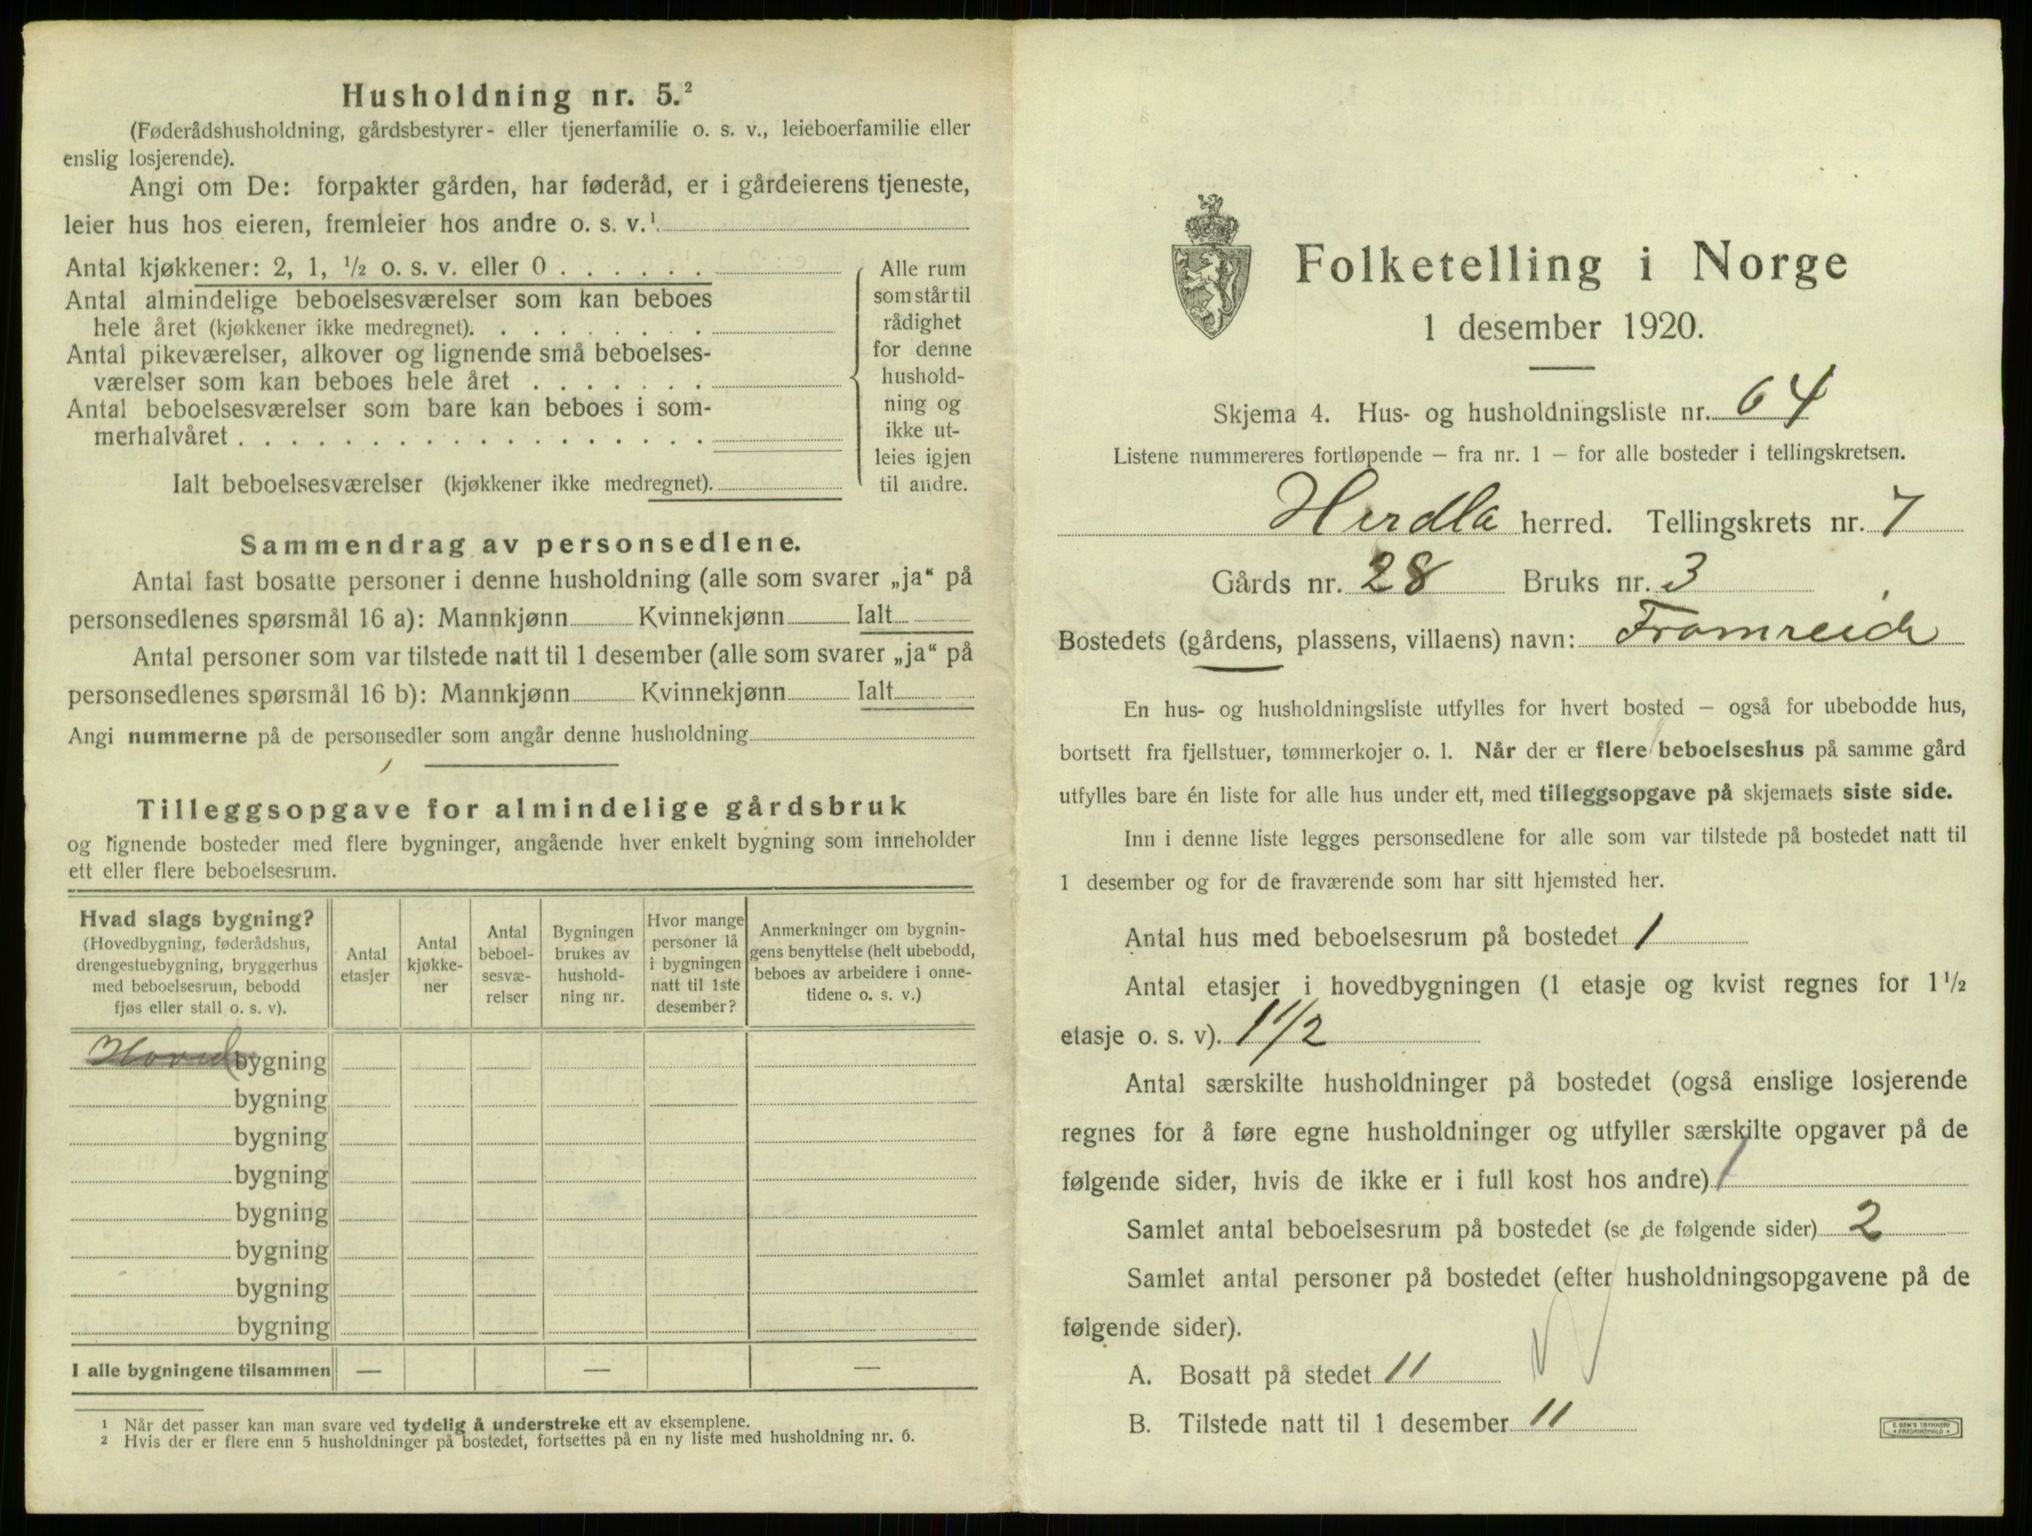 Husholdning nr. 5.²
(Føderådshusholdning, gårdsbestyrer- eller tjenerfamilie o. s. v., leieboerfamilie eller
enslig losjerende).
Angi om De: forpakter gården, har føderåd, er i gårdeierens tjeneste,
leier hus hos eieren, fremleier hos andre o. s. v.¹
Antal kjøkkener: 2, 1, ½ o. s. v. eller 0 . . . . . .
Antal almindelige beboelsesværelser som kan beboes
hele året (kjøkkener ikke medregnet). . . . . . . . .
Antal pikeværelser, alkover og lignende små beboelses-
værelser som kan beboes hele året . . . . . . .
Antal beboelsesværelser som bare kan beboes i som-
merhalvåret . . . . . . . . . . . . . . . . . .
Ialt beboelsesværelser (kjøkkener ikke medregnet).
Alle rum
som står til
rådighet
for denne
hushold-
ning og
ikke ut-
leies igjen
til andre.
Sammendrag av personsedlene.
Antal fast bosatte personer i denne husholdning (alle som svarer „ja“ på
personsedlenes spørsmål 16 a): Mannkjønn Kvinnekjønn Ialt
Antal personer som var tilstede natt til 1 desember (alle som svarer „ja“ på
personsedlenes spørsmål 16 b): Mannkjønn Kvinnekjønn Ialt
Angi nummerne på de personsedler som angår denne husholdning
Tilleggsopgave for almindelige gårdsbruk
og lignende bosteder med flere bygninger, angående hver enkelt bygning som inneholder
ett eller flere beboelsesrum.
Hvad slags bygning?
(Hovedbygning, føderådshus,
drengestuebygning, bryggerhus
med beboelsesrum, bebodd
fjøs eller stall o. s. v).
Antal
etasjer
Antal
kjøkke-
ner
Antal
beboel-
sesvæ-
relser
Bygningen
brukes av
hushold-
ning nr.
Hvor mange
personer lå
i bygningen
natt til 1ste
desember?
Anmerkninger om bygnin-
gens benyttelse (helt ubebodd,
beboes av arbeidere i onne-
tidene o. s. v.)
Hoved bygning
bygning
bygning
bygning
bygning
bygning
bygning
bygning
I alle bygningene tilsammen — — —
¹ Når det passer kan man svare ved tydelig å understreke ett av eksemplene.
² Hvis der er flere enn 5 husholdninger på bostedet, fortsettes på en ny liste med husholdning nr. 6.
Folketelling i Norge
1 desember 1920.
Skjema 4. Hus- og husholdningsliste nr. 64
Listene nummereres fortløpende – fra nr. 1 – for alle bosteder i tellingskretsen.
Herdla herred. Tellingskrets nr. 7
Gårds nr. 28 Bruks nr. 3
Bostedets (gårdens, plassens, villaens) navn: Framreide
En hus- og husholdningsliste utfylles for hvert bosted – også for ubebodde hus,
bortsett fra fjellstuer, tømmerkojer o. l. Når der er flere beboelseshus på samme gård
utfylles bare én liste for alle hus under ett, med tilleggsopgave på skjemaets siste side.
Inn i denne liste legges personsedlene for alle som var tilstede på bostedet natt til
1 desember og for de fraværende som har sitt hjemsted her.
Antal hus med beboelsesrum på bostedet 1
Antal etasjer i hovedbygningen (1 etasje og kvist regnes for 1½
etasje o. s. v). 1 1/2
Antal særskilte husholdninger på bostedet (også enslige losjerende
regnes for å føre egne husholdninger og utfyller særskilte opgaver på de
følgende sider, hvis de ikke er i full kost hos andre) 1
Samlet antal beboelsesrum på bostedet (se de følgende sider) 2
Samlet antal personer på bostedet (efter husholdningsopgavene på de
følgende sider).
A. Bosatt på stedet 11
B. Tilstede natt til 1 desember 11
E. SEM'S TRYKKERI
FREDRIKSHALD